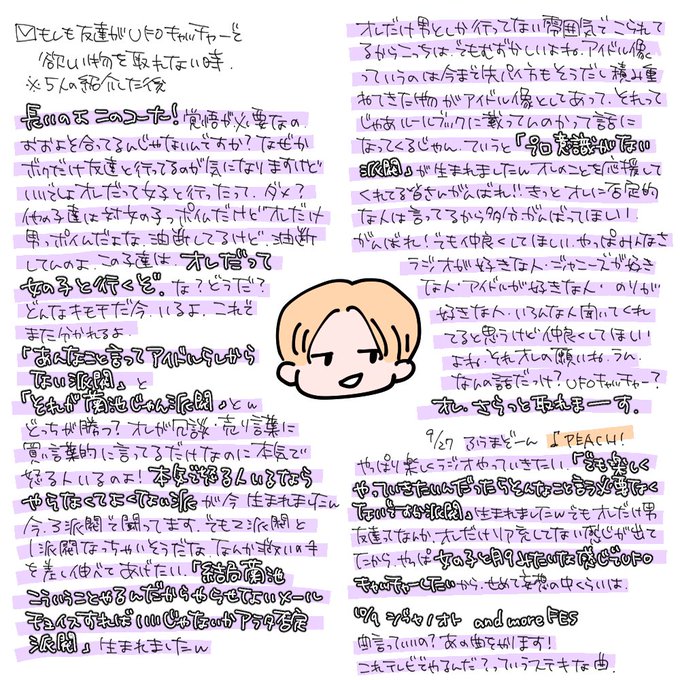 ☑もしも友達がUFOキャッチャーで
欲しい物を取れない時.
※5人の紹介した後
長いのよこのコーナー!覚悟が必要なの.
おおよそ合ってるんじゃないんですか?なぜか
ボクだけ友達と行ってるのが気になりますけど
いいでしょオレだって女子と行ったって.ダメ?
他の子達は 女の子っポイんだけどオレだけ
男っポイんだよな.油断してるけど.油断
してんのよ.この子達は.オレだって
女の子と行くぞ.な?どうだ?
どんなキモチだ今.いるよ.これで
また分かれるよ
「あんなこと言ってアイドルらしから
ない派閥」と
「それが菊池じゃん派閥」とw
どっちが勝つ?オレが冗談・売り言葉に
買い言葉的に言ってるだけなのに本気で
怒る人いるのよ!本気で怒る人いるなら
やらなくてよくない派が今生まれましたw
今.3派閥で闘ってます.でも2派閥と
1派閥なっちゃいそうだな.なんか救いの手
を差し伸べてあげたい.「結局菊池
こういうことやるんだからやらせないメール
チョイスすればいいじゃないか
派閥」生まれましたw
オレだけ男としか行ってない雰囲気でこられて
るからこっちは.でもむずかしいよね.アイドル像
っていうのは今まで先パイ方もそうだし積み重
ねてきた物がアイドル像としてあって.それって
じゃあルールブックに載ってんのかって話に
なってくるじゃん.ていうと「プロ意識がない
派閥」が生まれましたw オレのことを応援して
くれてる皆さんがんばれ!!きっとオレに否定的
な人は言ってるから多分がんばってほしい.
がんばれ!でも仲良くしてほしい.やっぱみんなさ
ラジオが好きな人・ジャニーズが好き
な人・アイドルが好きな人・のりが
好きな人.いろんな人聞いてくれ
てると思うけど仲良くしてほしい
よね.それオレの願いね.うん.
なんの話だっけ?UFOキャッチャー?
オレ.さらっと取れまーす.
9/27 らじらーぞーん ♪PEACH!
やっぱり楽しくラジオやっていきたい.「でも楽しく
やっていきたいんだったらそんなこと言う必要なく
ないですか派閥」生まれましたw でもオレだけ男
友達ってなんか.オレだけリア充してない感じが出て
たから.やっぱ女の子と月9みたいな感じでUFO
キャッチャーしたいから.せめて妄想の中くらいは.
and more FES
曲言っていいの?あの曲をやります!
これテレビでやるんだ?っていうステキな曲.